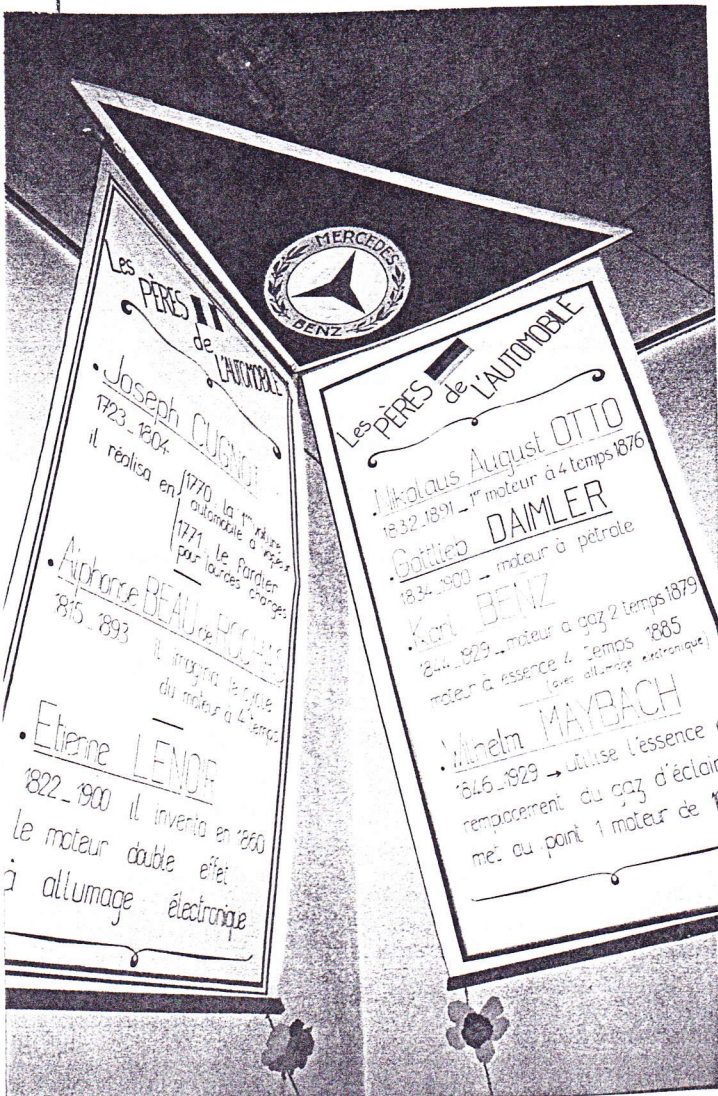 MERCEDES
BENZ
Les PÈRES
de L'AUTOMOBILE
. Joseph CUGNOT
1723_1804
il réalisa en 1770 la 1re voiture
automobile à vapeur
1771 le Fardier
pour lourdes charges
. Alphonse BEAU de ROCHAS
1815_1893 il imagina le cycle
du moteur à 4 temps
. Etienne LENOIR
1822_1900 il inventa en 1860
le moteur double effet
à allumage électronique
Les PÈRES de L'AUTOMOBILE
. Nikolaus August OTTO
1832_1891 _ 1er moteur à 4 temps 1876
. Gottlieb DAIMLER
1834_1900 → moteur à pétrole
. Karl BENZ
1844_1929 _ moteur a gaz 2 temps 1879
moteur à essence 4 temps 1885
(avec allumage électronique)
. Wilhelm MAYBACH
1846_1929 → utilise l'essence
remplacement du gaz d'éclair
met au point 1 moteur de